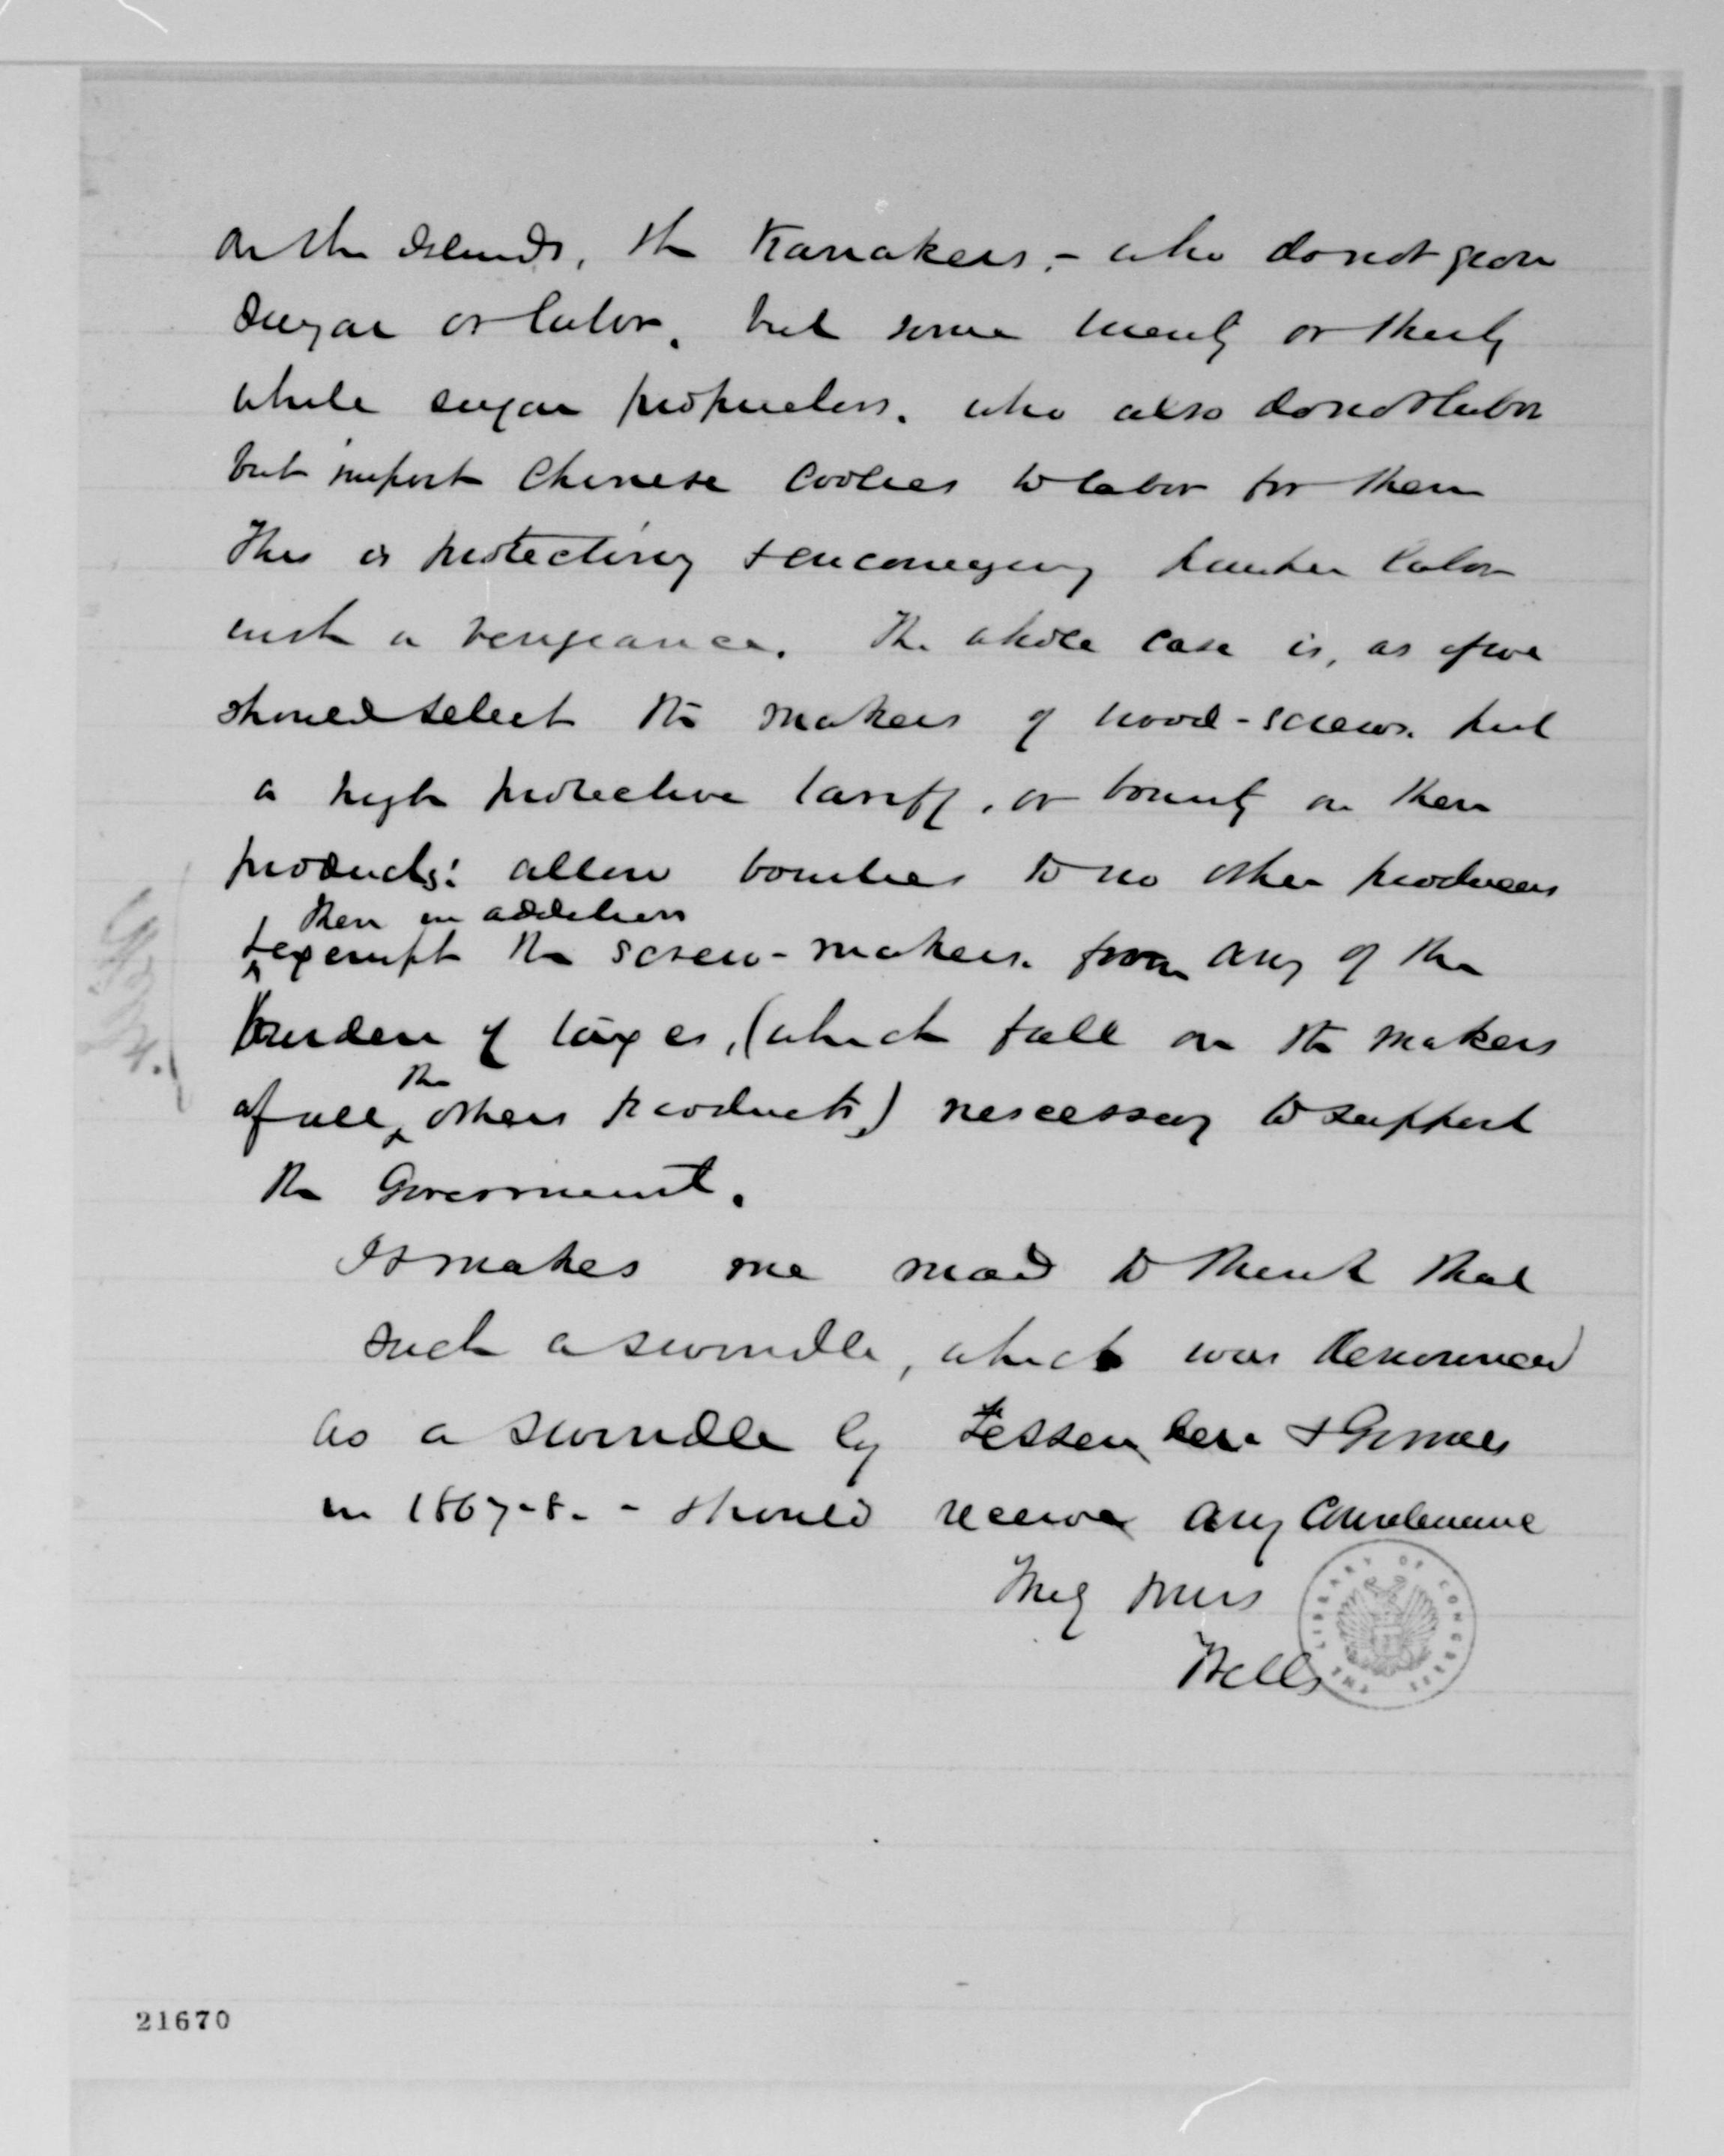 on the Islands, the Kanakers, - who do not grow
sugar or labor, but some twenty or thirty
white sugar proprietors, who also do not labor
but import Chinese coolies to labor for them
This is protecting & encouraging labor
with a vengeance. The whole case is, as if we
should select the makers of wood-screws. put
a high protective tariff, or bounty on their
products: allow bounties to no other producers
then in addition
& exempt the screw-makers. from any of the
burden of taxes, (which fall on the makers
the
of all others products) nescessary to support
the Government.
It makes me mad to think that
such a swindle, which was denounced
as a swindle by Fessenden & Grimes
in 1867-8. - should receive any countenance
Truly Yours
Wells
THE LIBRARY OF CONGRESS
21670